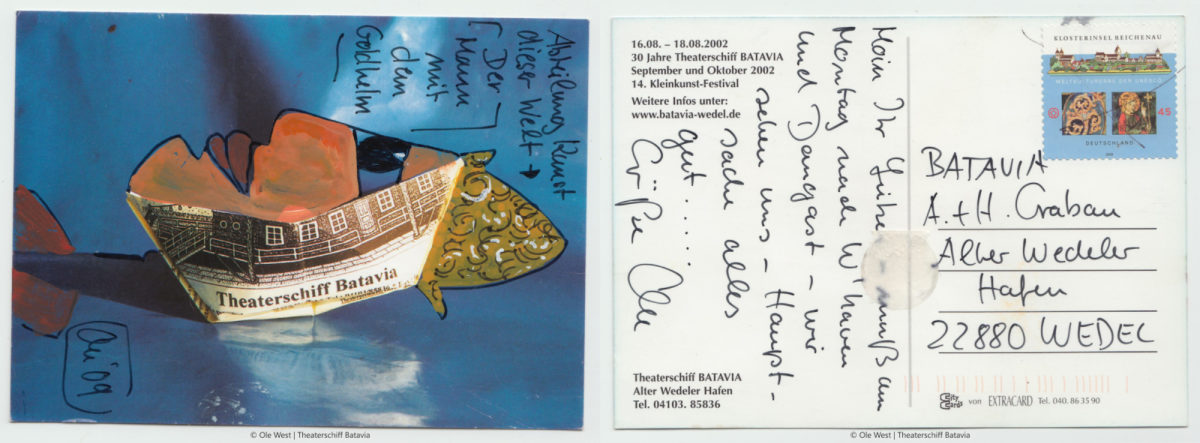 Abteilung Kunst
dieser Welt →
[Der
Mann
mit
dem
Goldhelm]
Theaterschiff Batavia
09
© Ole West | Theaterschiff Batavia
16.08. – 18.08.2002
30 Jahre Theaterschiff BATAVIA
September und Oktober 2002
14. Kleinkunst-Festival
Weitere Infos unter:
www.batavia-wedel.de
Moin Ihr Lieben muß am
Montag nach W'haven
und Dangast – wir
sehen uns – Haupt-
sache alles
gut .....
Grüße Ole
Theaterschiff BATAVIA
Alter Wedeler Hafen
Tel. 04103. 85836
KLOSTERINSEL REICHENAU
WELTKULTURERBE DER UNESCO
45
DEUTSCHLAND
BATAVIA
A.+H. Grabau
Alter Wedeler
Hafen
22880 WEDEL
City Cards von EXTRACARD Tel. 040. 86 35 90
© Ole West | Theaterschiff Batavia